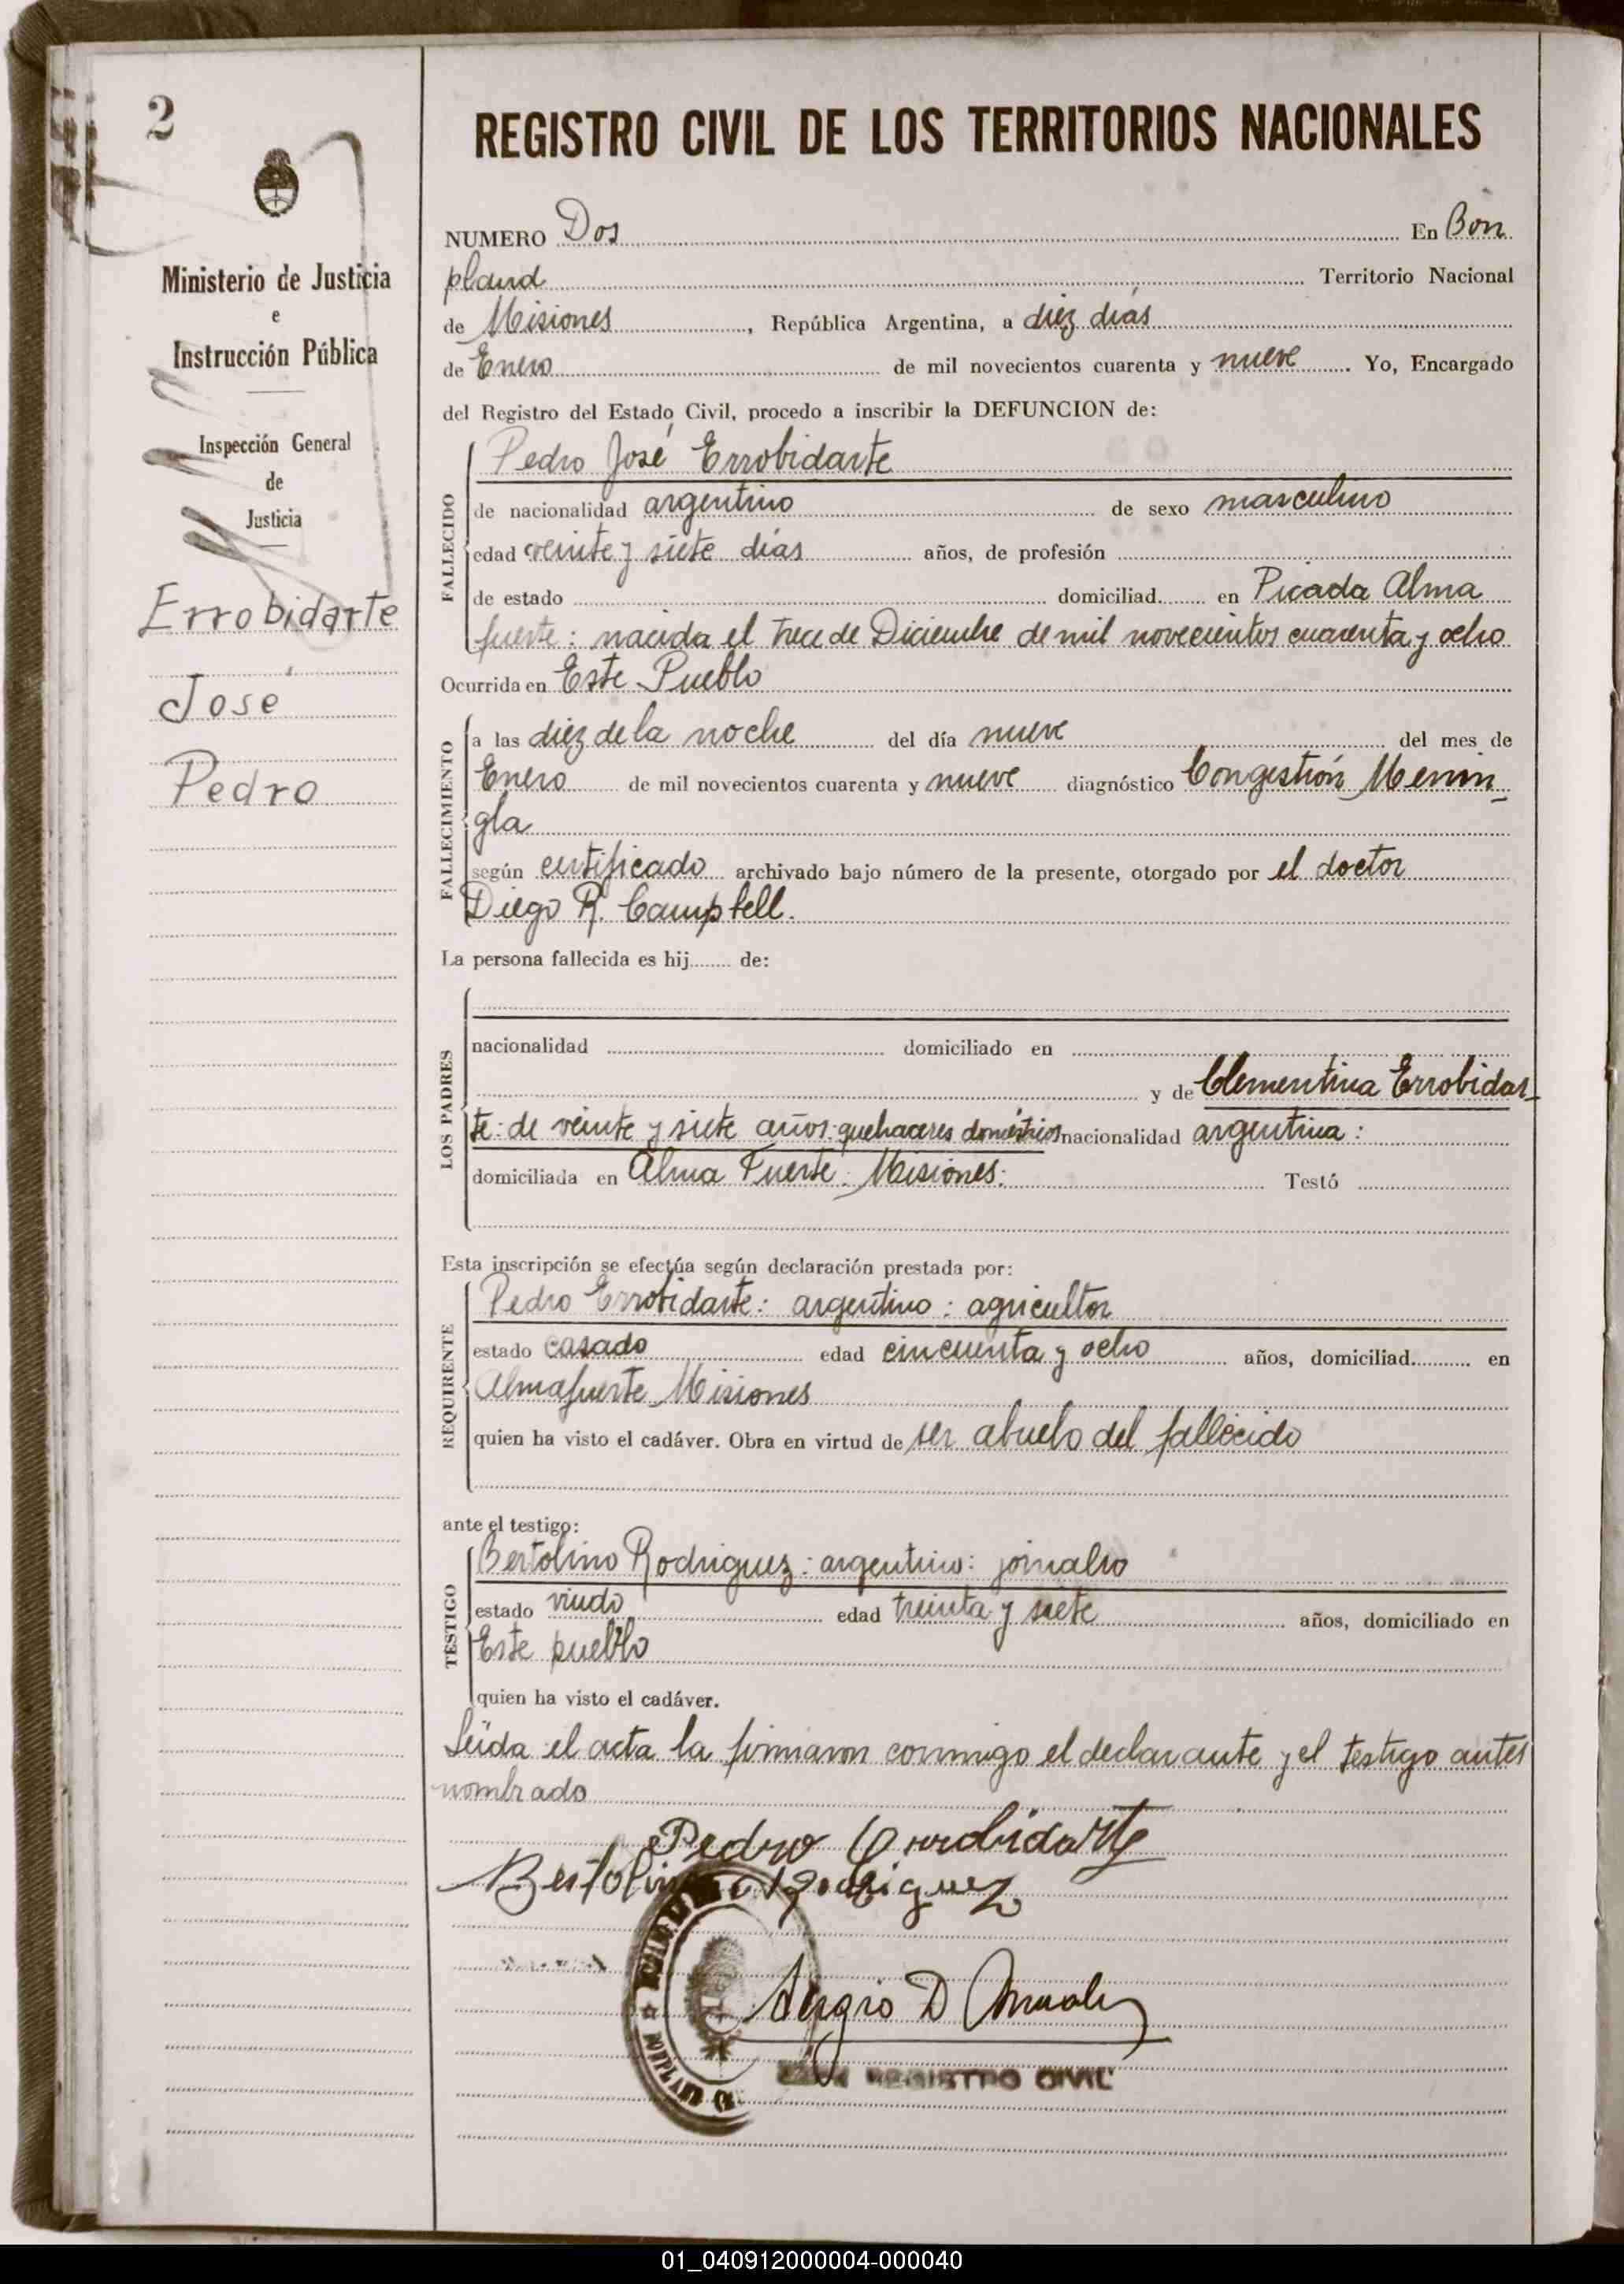 2
Ministerio de Justicia
e
Instrucción Pública
Inspección General
de
Justicia
Errobidarte
José
Pedro
REGISTRO CIVIL DE LOS TERRITORIOS NACIONALES
NUMERO Dos En Bon
pland Territorio Nacional
de Misiones, República Argentina, a diez días
de Enero de mil novecientos cuarenta y nueve. Yo, Encargado
del Registro del Estado Civil, procedo a inscribir la DEFUNCION de:
FALLECIDO
Pedro José Errobidarte
de nacionalidad argentino de sexo masculino
edad veinte y siete días años, de profesión
de estado domiciliad en Picada Alma
fuerte: nacida el trece de Diciembre de mil novecientos cuarenta y ocho
Ocurrida en Este Pueblo
FALLECIMIENTO
a las diez de la noche del día nueve del mes de
Enero de mil novecientos cuarenta y nueve diagnóstico Congestión Menin_
gla
según certificado archivado bajo número de la presente, otorgado por el doctor
Diego R. Campbell.
La persona fallecida es hij de:
LOS PADRES
nacionalidad domiciliado en
y de Clementina Errobidar_
te: de veinte y siete años: quehaceres domésticos nacionalidad argentina:
domiciliada en Alma Fuerte: Misiones: Testó
Esta inscripción se efectúa según declaración prestada por:
REQUIRENTE
Pedro Errobidarte: argentino: agricultor
estado casado edad cincuenta y ocho años, domiciliad en
Almafuerte Misiones
quien ha visto el cadáver. Obra en virtud de ser abuelo del fallecido
ante el testigo:
TESTIGO
Bertolino Rodriguez: argentino: jornalro
estado viudo edad treinta y siete años, domiciliado en
Este pueblo
quien ha visto el cadáver.
Leída el acta la firmaron conmigo el declarante y el testigo antes
nombrado
Pedro Errobidarte
Bertolino Rodriguez
Sergio D
REGISTRO CIVIL
01_040912000004-000040